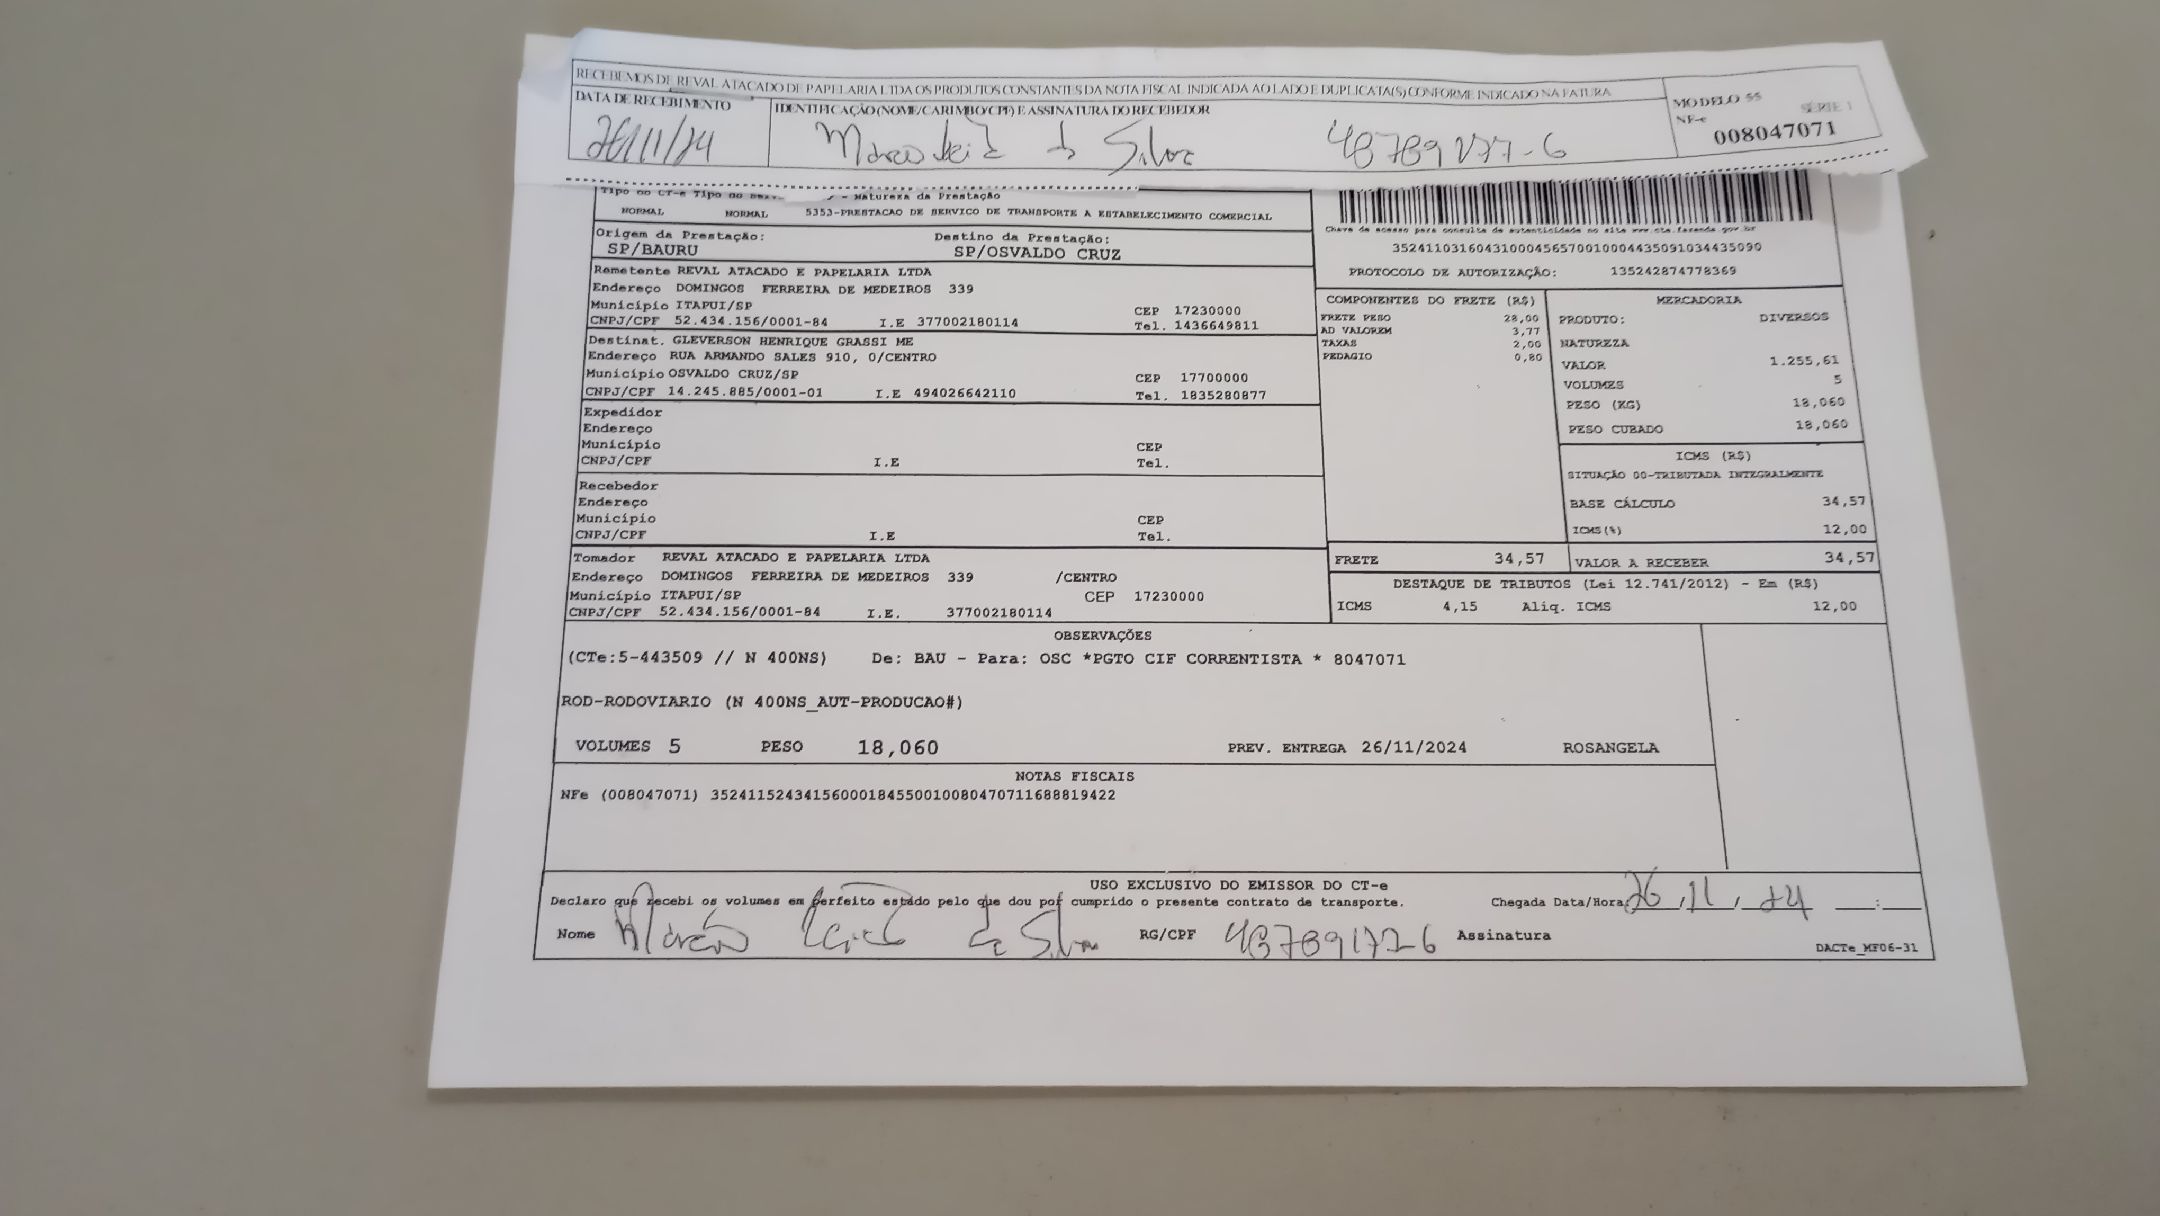 RECEBEMOS DE REVAL ATACADO DE PAPELARIA LTDA OS PRODUTOS CONSTANTES DA NOTA FISCAL INDICADA AO LADO E DUPLICATA(S) CONFORME INDICADO NA FATURA
DATA DE RECEBIMENTO IDENTIFICAÇÃO (NOME/CARIMBO/CPF) E ASSINATURA DO RECEBEDOR MODELO 55 SÉRIE 1
NF-e 008047071
26/11/24 da Silva
Tipo do CT-e Tipo do - Natureza da Prestação
NORMAL NORMAL 5353-PRESTACAO DE SERVICO DE TRANSPORTE A ESTABELECIMENTO COMERCIAL
Chave de acesso para consulta de autenticidade no site www.cte.fazenda.gov.br
35241103160431000456570010004435091034435090
PROTOCOLO DE AUTORIZAÇÃO: 135242874778369
Origem da Prestação: Destino da Prestação:
SP/BAURU SP/OSVALDO CRUZ
Remetente REVAL ATACADO E PAPELARIA LTDA
Endereço DOMINGOS FERREIRA DE MEDEIROS 339
Município ITAPUI/SP CEP 17230000
CNPJ/CPF 52.434.156/0001-84 I.E 377002180114 Tel. 1436649811
Destinat. GLEVERSON HENRIQUE GRASSI ME
Endereço RUA ARMANDO SALES 910, 0/CENTRO
Município OSVALDO CRUZ/SP CEP 17700000
CNPJ/CPF 14.245.885/0001-01 I.E 494026642110 Tel. 1835280877
Expedidor
Endereço
Município CEP
CNPJ/CPF I.E Tel.
Recebedor
Endereço
Município CEP
CNPJ/CPF I.E Tel.
Tomador REVAL ATACADO E PAPELARIA LTDA
Endereço DOMINGOS FERREIRA DE MEDEIROS 339 /CENTRO
Município ITAPUI/SP CEP 17230000
CNPJ/CPF 52.434.156/0001-84 I.E. 377002180114
COMPONENTES DO FRETE (R$)
FRETE PESO 28,00
AD VALOREM 3,77
TAXAS 2,00
PEDAGIO 0,80
MERCADORIA
PRODUTO: DIVERSOS
NATUREZA
VALOR 1.255,61
VOLUMES 5
PESO (KG) 18,060
PESO CUBADO 18,060
ICMS (R$)
SITUAÇÃO 00-TRIBUTADA INTEGRALMENTE
BASE CÁLCULO 34,57
ICMS(%) 12,00
FRETE 34,57 VALOR A RECEBER 34,57
DESTAQUE DE TRIBUTOS (Lei 12.741/2012) - Em (R$)
ICMS 4,15 Aliq. ICMS 12,00
OBSERVAÇÕES
(CTe:5-443509 // N 400NS) De: BAU - Para: OSC *PGTO CIF CORRENTISTA * 8047071
ROD-RODOVIARIO (N 400NS_AUT-PRODUCAO#)
VOLUMES 5 PESO 18,060 PREV. ENTREGA 26/11/2024 ROSANGELA
NOTAS FISCAIS
NFe (008047071) 35241152434156000184550010080470711688819422
USO EXCLUSIVO DO EMISSOR DO CT-e
Declaro que recebi os volumes em perfeito estado pelo que dou por cumprido o presente contrato de transporte. Chegada Data/Hora 26/11/24 __:__
Nome da Silva RG/CPF Assinatura
DACTe_MF06-31